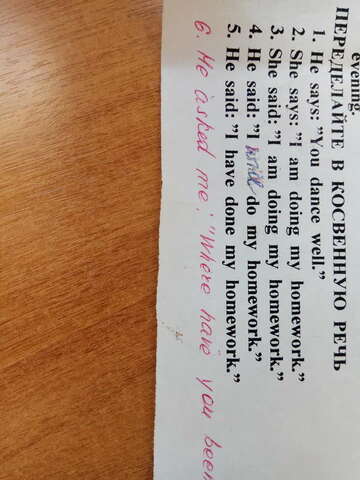 evening.
ПЕРЕДЕЛАЙТЕ В КОСВЕННУЮ РЕЧЬ
1. He says: ”You dance well.”
2. She says: ”I am doing my homework.”
3. She said: ”I am doing my homework.”
4. He said: ”I will do my homework.”
5. He said: ”I have done my homework.”
6. He asked me: "Where have you been